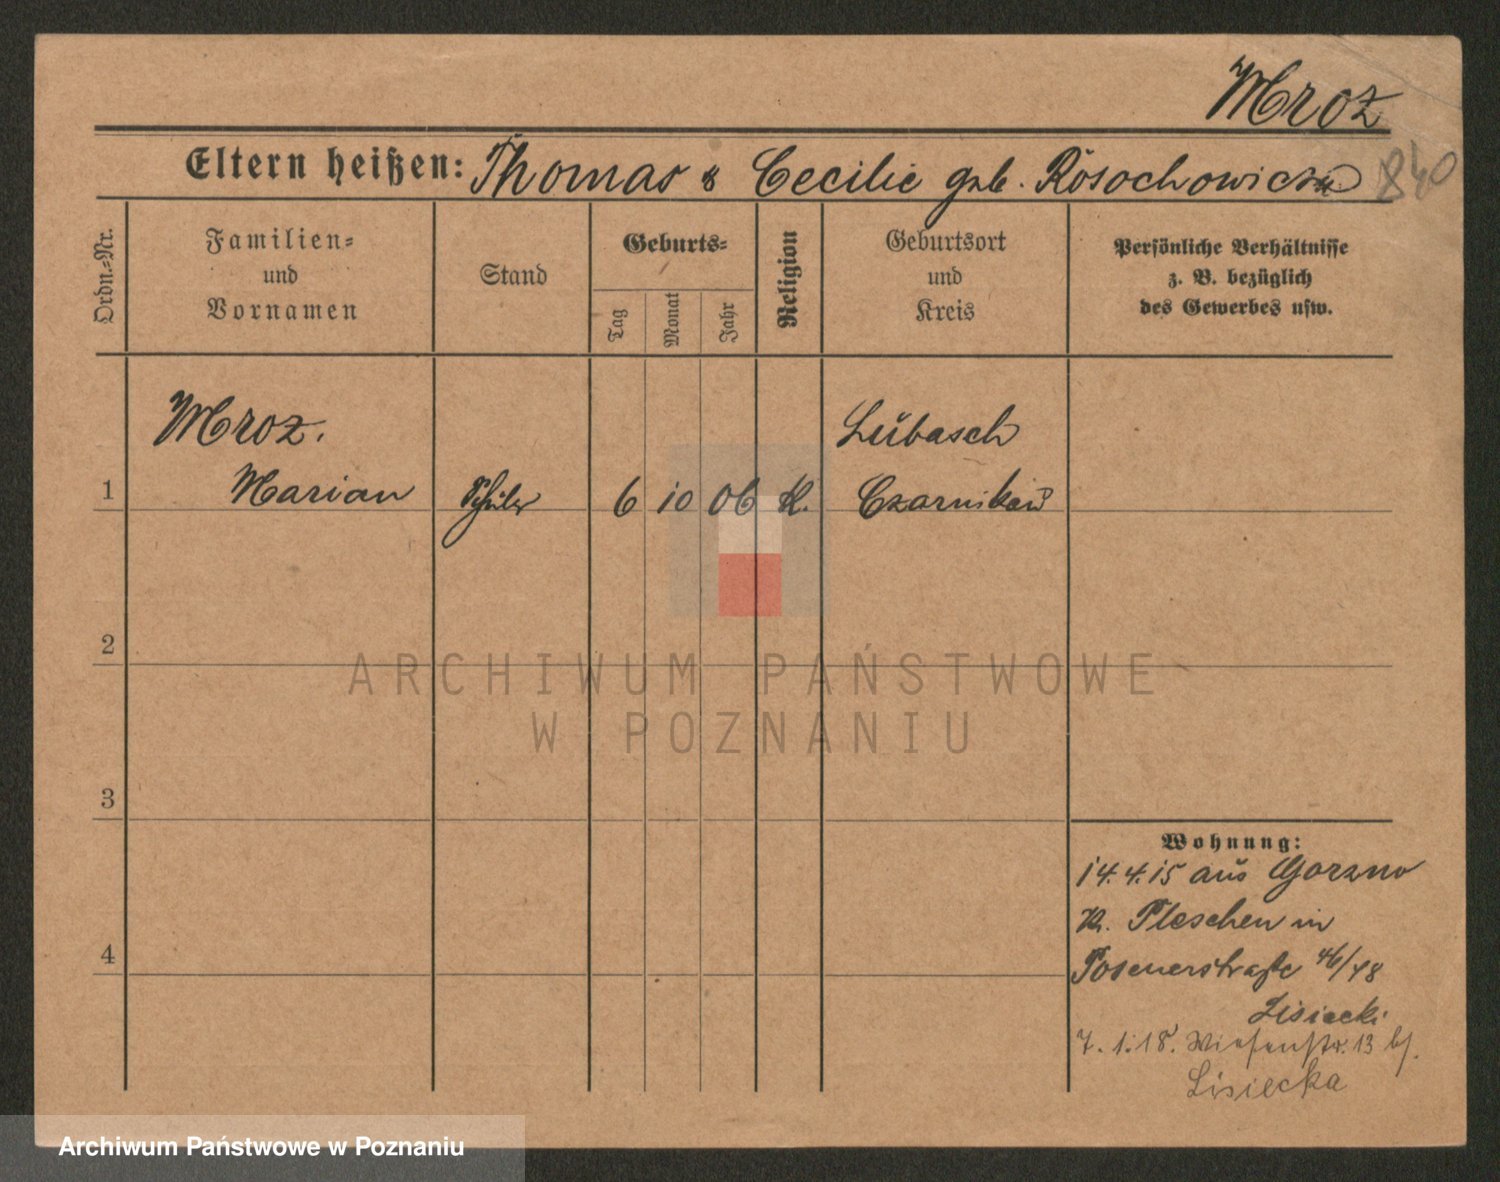 Mroz
Eltern heißen: Thomas & Cecilie geb. Rosochowicz
840
Ordn.-Nr.
Familien-
und
Vornamen
Stand
Geburts-
Tag
Monat
Jahr
Religion
Geburtsort
und
Kreis
Persönliche Verhältnisse
z. B. bezüglich
des Gewerbes usw.
Mroz.
Lubasch
1 Marian Schüler 6 10 06 K. Czarnikau
2
ARCHIWUM PAŃSTWOWE
W POZNANIU
3
Wohnung:
14.4.15 aus Gorzno
K. Pleschen in
4
Posenerstraße 46/48
Lisiecki
7.1.18. Wiesenstr. 13 bj.
Lisiecka
Archiwum Państwowe w Poznaniu